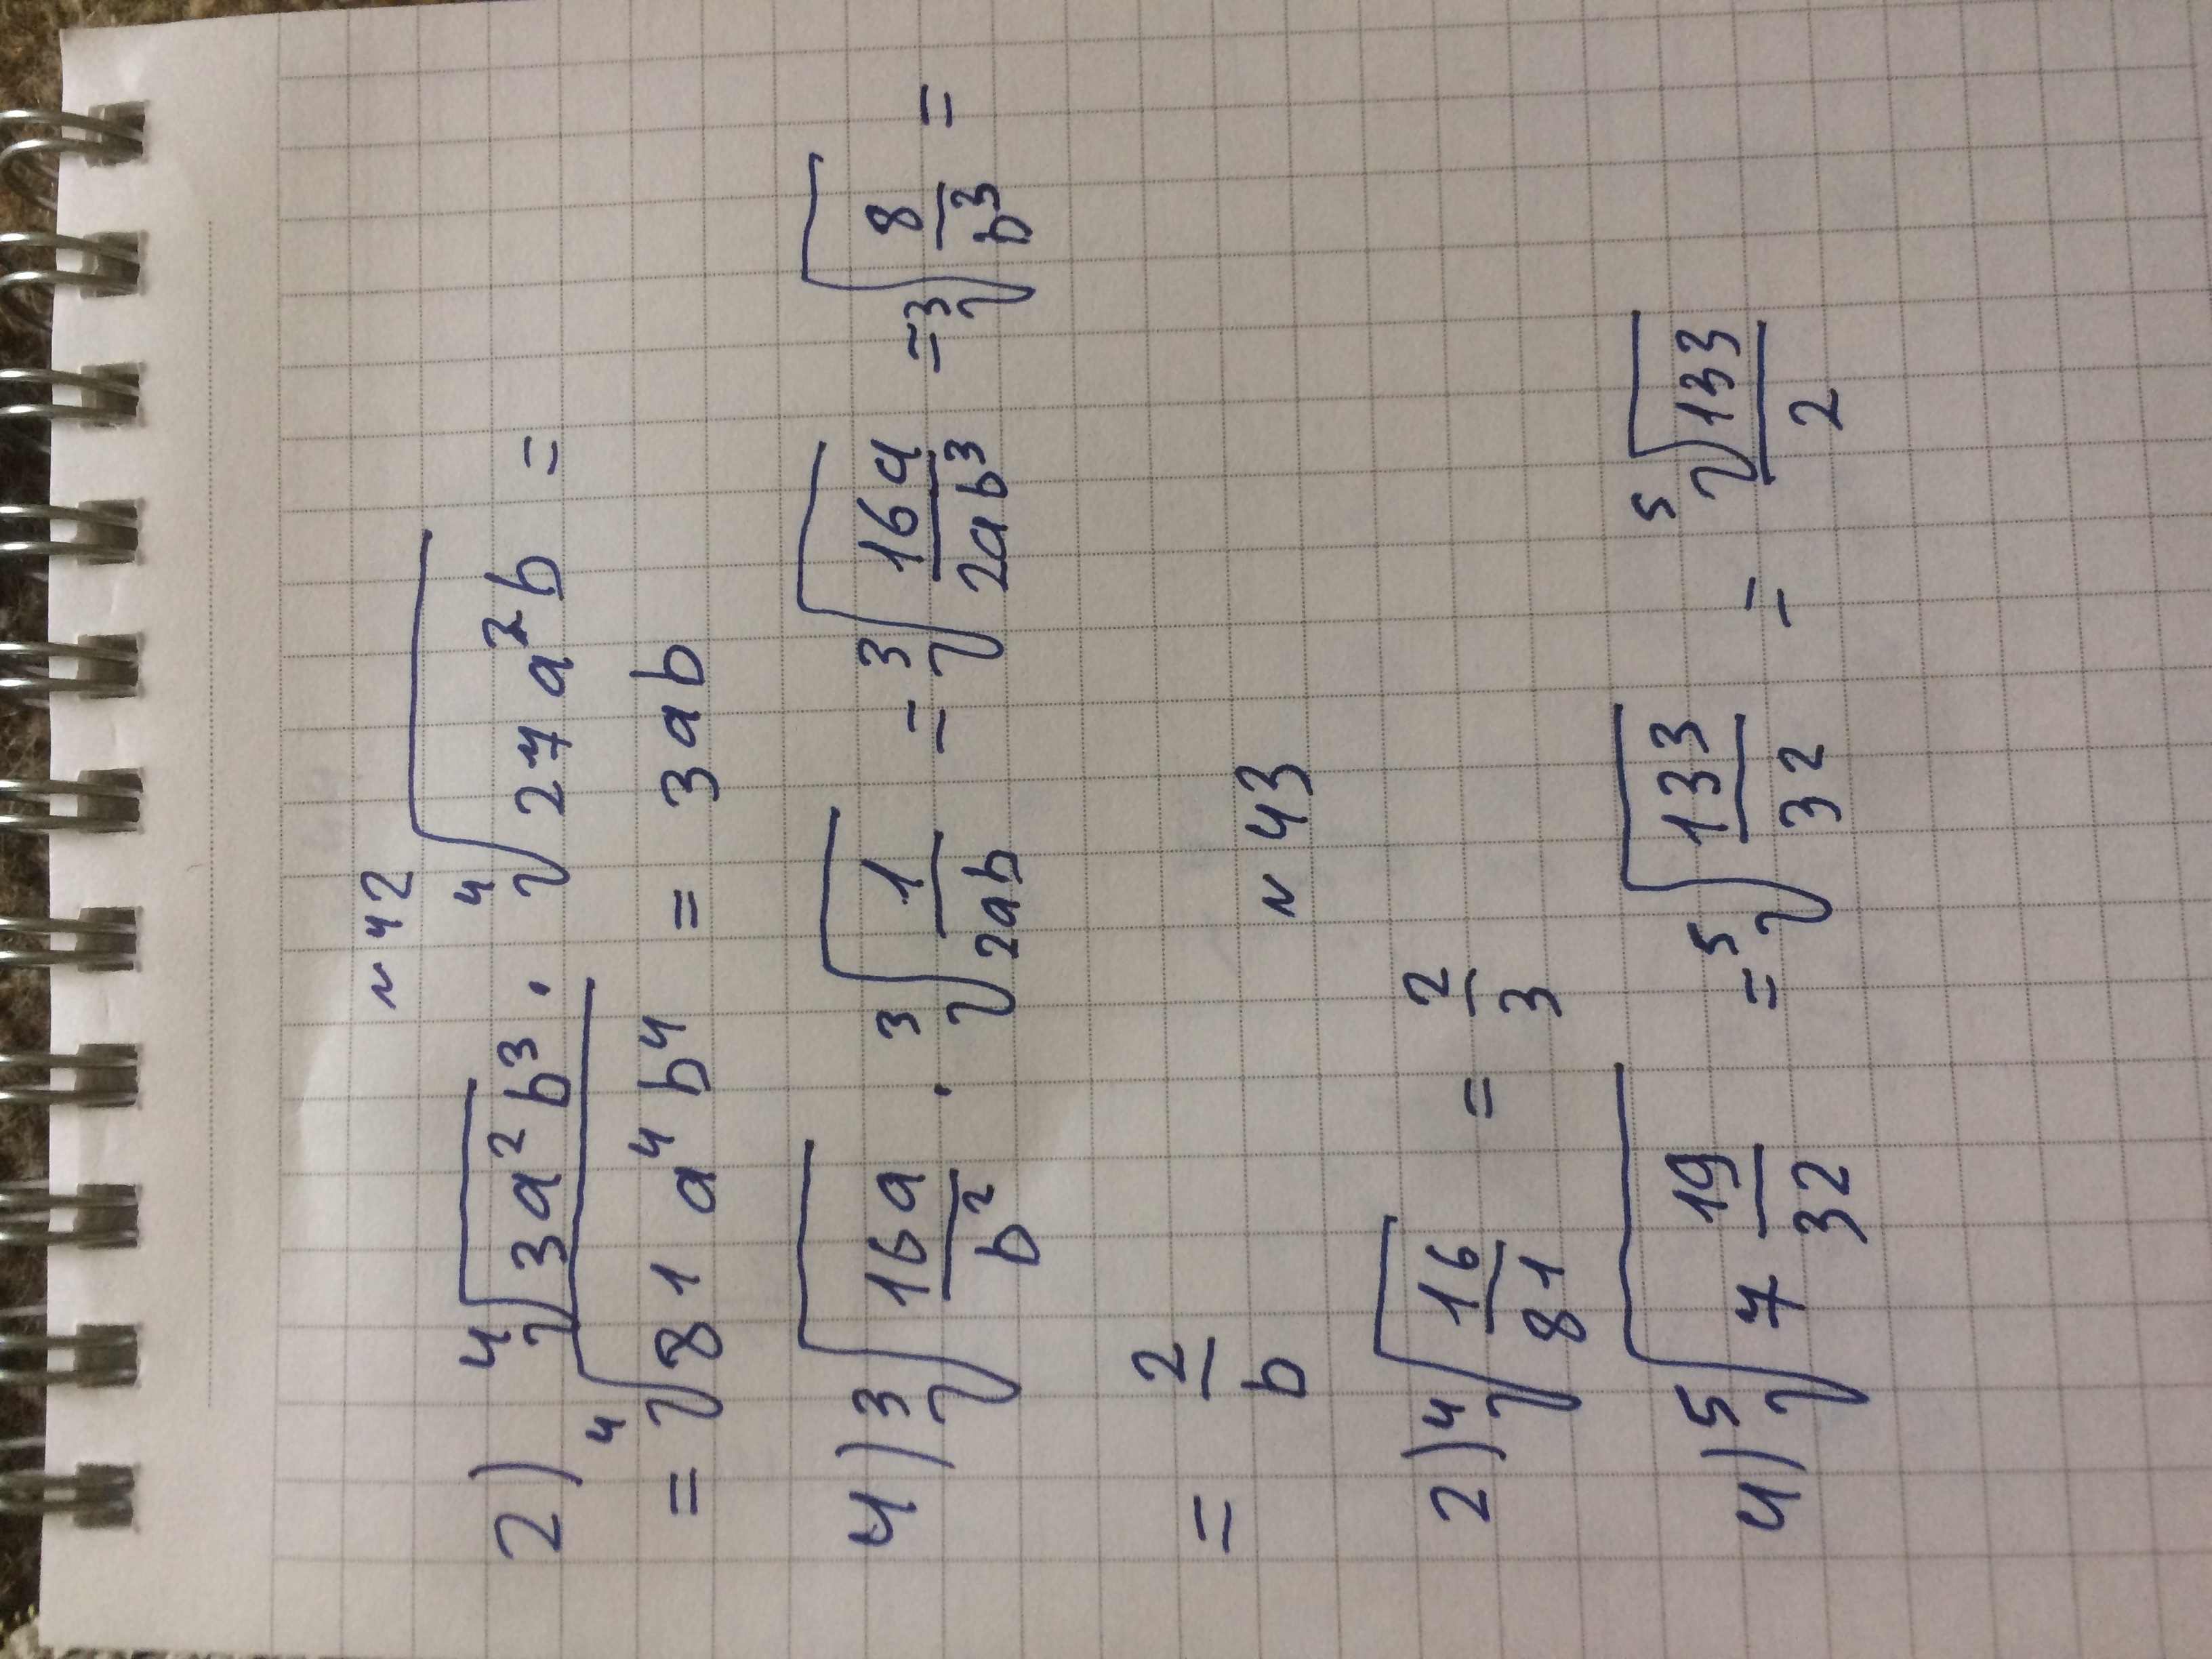 № 42
2) ⁴√(3a²b³) · ⁴√(27a²b) =
= ⁴√(81a⁴b⁴) = 3ab
4) ³√(16a/b²) · ³√(1/2ab) = ³√(16a/2ab³) = ³√(8/b³) =
= 2/b
№ 43
2) ⁴√(16/81) = 2/3
4) ⁵√(7 19/32) = ⁵√(133/32) = ⁵√133/2